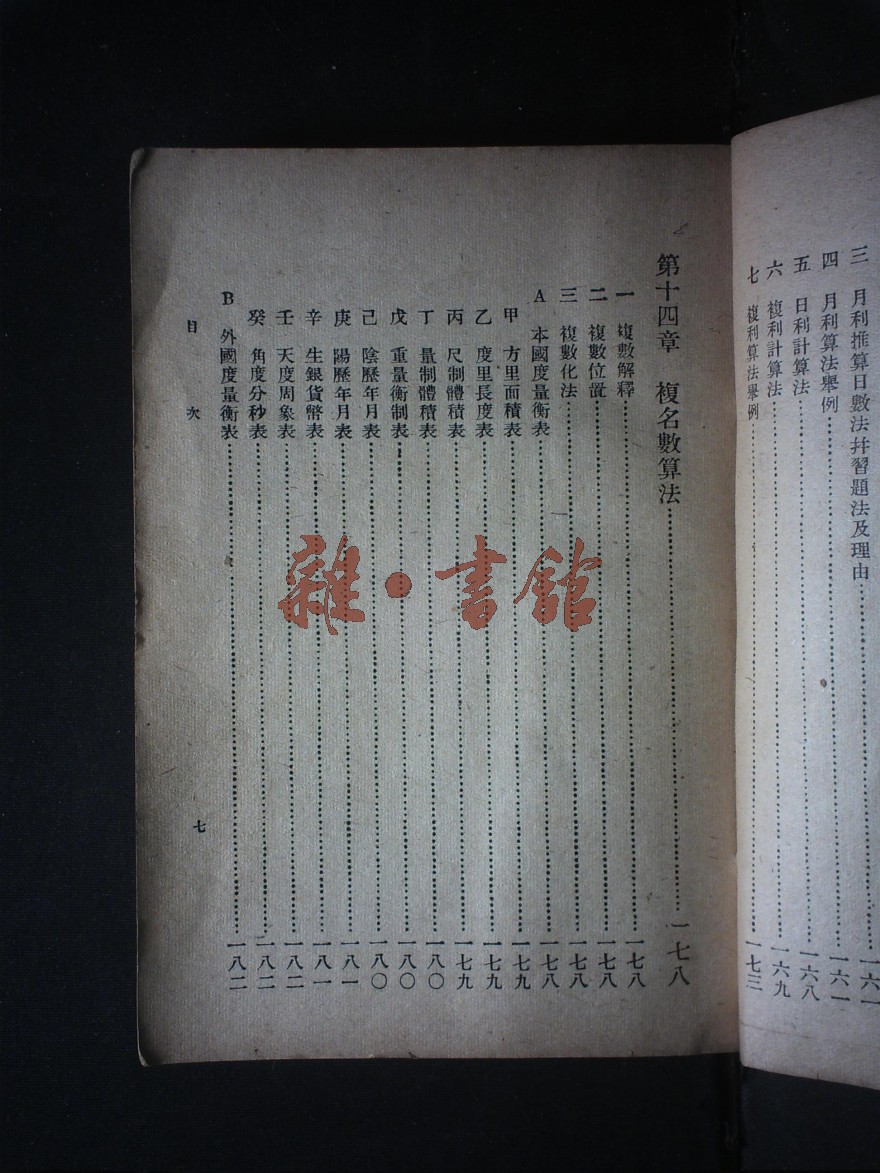 三　月利推算日數法并習題法及理由……一六一
四　月利算法舉例……一六一
五　日利計算法……一六八
六　複利計算法……一六九
七　複利算法舉例……一七三
第十四章　複名數算法……一七八
一　複數解釋……一七八
二　複數位置……一七八
三　複數化法……一七八
A　本國度量衡表……一七八
甲　方里面積表……一七九
乙　度里長度表……一七九
丙　尺制體積表……一七九
丁　量制體積表……一八〇
戊　重量衡制表……一八〇
己　陰歷年月表……一八〇
庚　陽歷年月表……一八一
辛　生銀貨幣表……一八一
壬　天度周象表……一八二
癸　角度分秒表……一八二
B　外國度量衡表……一八二
目次
七
雜·書館